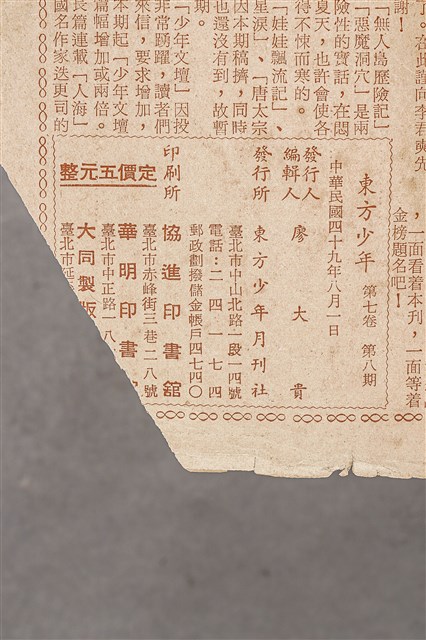 了。在此謹向李君奭先
謝！
「無人島歷險記」
「惡魔洞穴」是兩
險性的實話，在悶
夏天，也許會使各
得不悚而寒的。
「娃娃飄流記」、
星淚」、「唐太宗
因本期稿擠，同時
也還沒有到，故暫
期。
「少年文壇」因投
非常踴躍，讀者們
來信，要求增加，
本期起「少年文壇
篇幅增加或兩倍。
長篇連載「人海」
國名作家迭更司的
，一面看着本刊，一面等着
金榜題名吧！
東方少年 第七卷 第八期
中華民國四十九年八月一日
發行人
編輯人 廖大貴
發行所 東方少年月刊社
臺北市中山北路一段一四號
電話：二四一七四
郵政劃撥儲金帳戶四七四〇
印刷所 協進印書舘
臺北市赤峰街三巷二八號
華明印書
臺北市中正路一八
大同製版
臺北市延
定價五元整